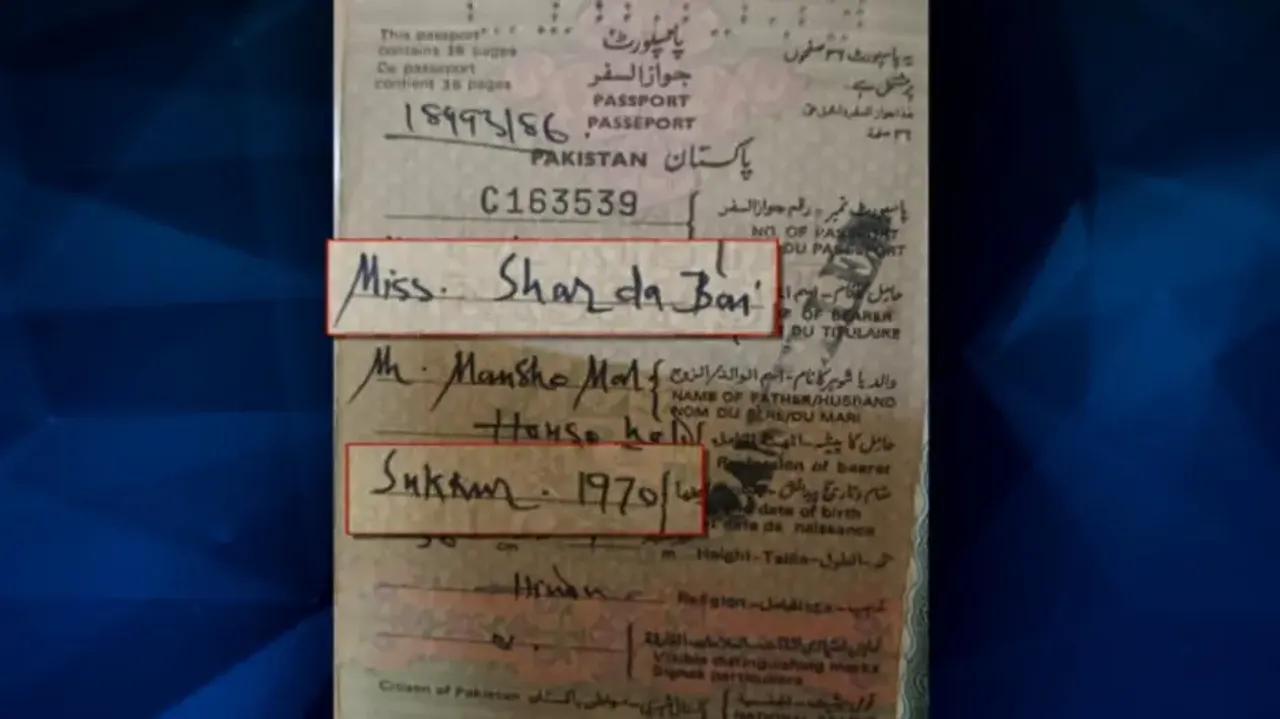 This passport
contains 36 pages
Ce passeport
contient 36 pages
پاسپورٹ
جواز السفر
PASSPORT
PASSEPORT
یہ پاسپورٹ ٣٦ صفحوں
پر مشتمل ہے
٣٦ صفحة
18493/86.
PAKISTAN پاکستان
C163539
پاسپورٹ نمبر - رقم جواز السفر
NO. OF PASSPORT
DU PASSEPORT
Miss. Sharda Bai
OF BEARER
DU TITULAIRE
Mr. Mansho Mal
والد یا شوہر کا نام - اسم الوالد/الزوج
NAME OF FATHER/HUSBAND
NOM DU PÈRE/DU MARI
House hold
حامل کا پیشہ
Profession of bearer
Sukkur. 1970
date of birth
date de naissance
cm
m Height-Taille
Hindu
Religion
Visible distinguishing marks
Signes particuliers
Citizen of Pakistan